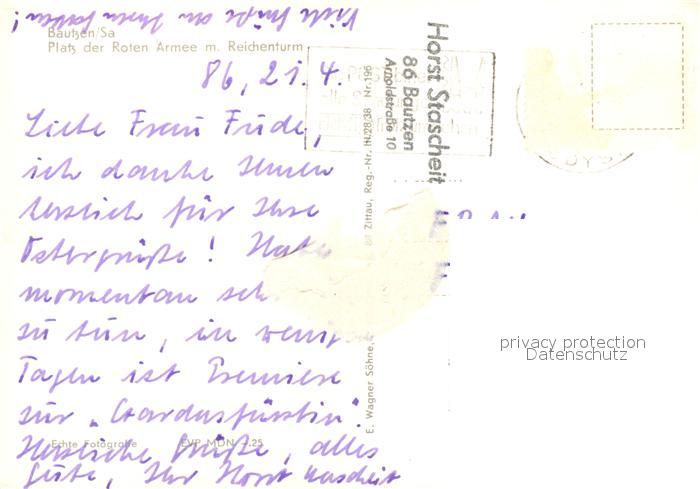 Viele Grüße an Ihren Gatten!
Bautzen/Sa
Platz der Roten Armee m. Reichenturm
86, 21.4.
Liebe Frau Fude,
ich danke Ihnen
herzlich für Ihre
Ostergrüße! Habe
momentan seh
zu tun, in wenig
Tagen ist Premiere
zur „Czardasfürstin".
Herzliche Grüße, alles
Gute, Ihr Horst Stascheit
Echte Fotografie EVP MDN -.25
E. Wagner Söhne, Zittau, Reg.-Nr. III/28/38 Nr. 196
Horst Stascheit
86 Bautzen
Arnoldstraße 10
privacy protection
Datenschutz